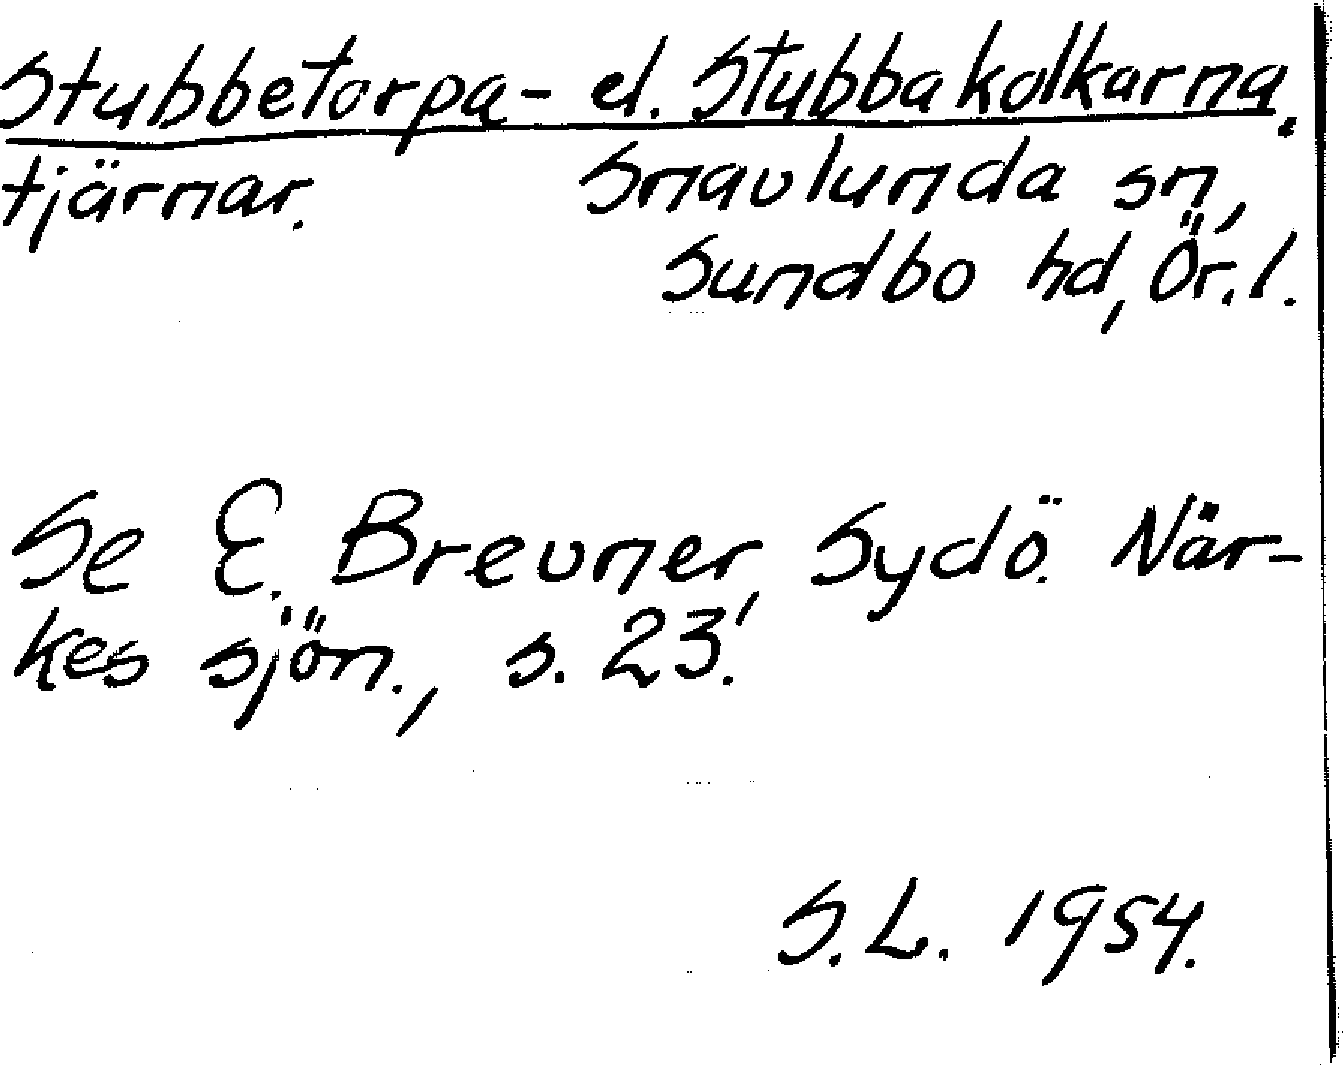 Stubbetorpa- el. Stubbakolkarna.
tjärnar. Snavlunda sn,
Sundbo hd, Ör. l.
Se E. Brevner, Sydö. När-
kes sjön., s. 23.
S.L. 1954.